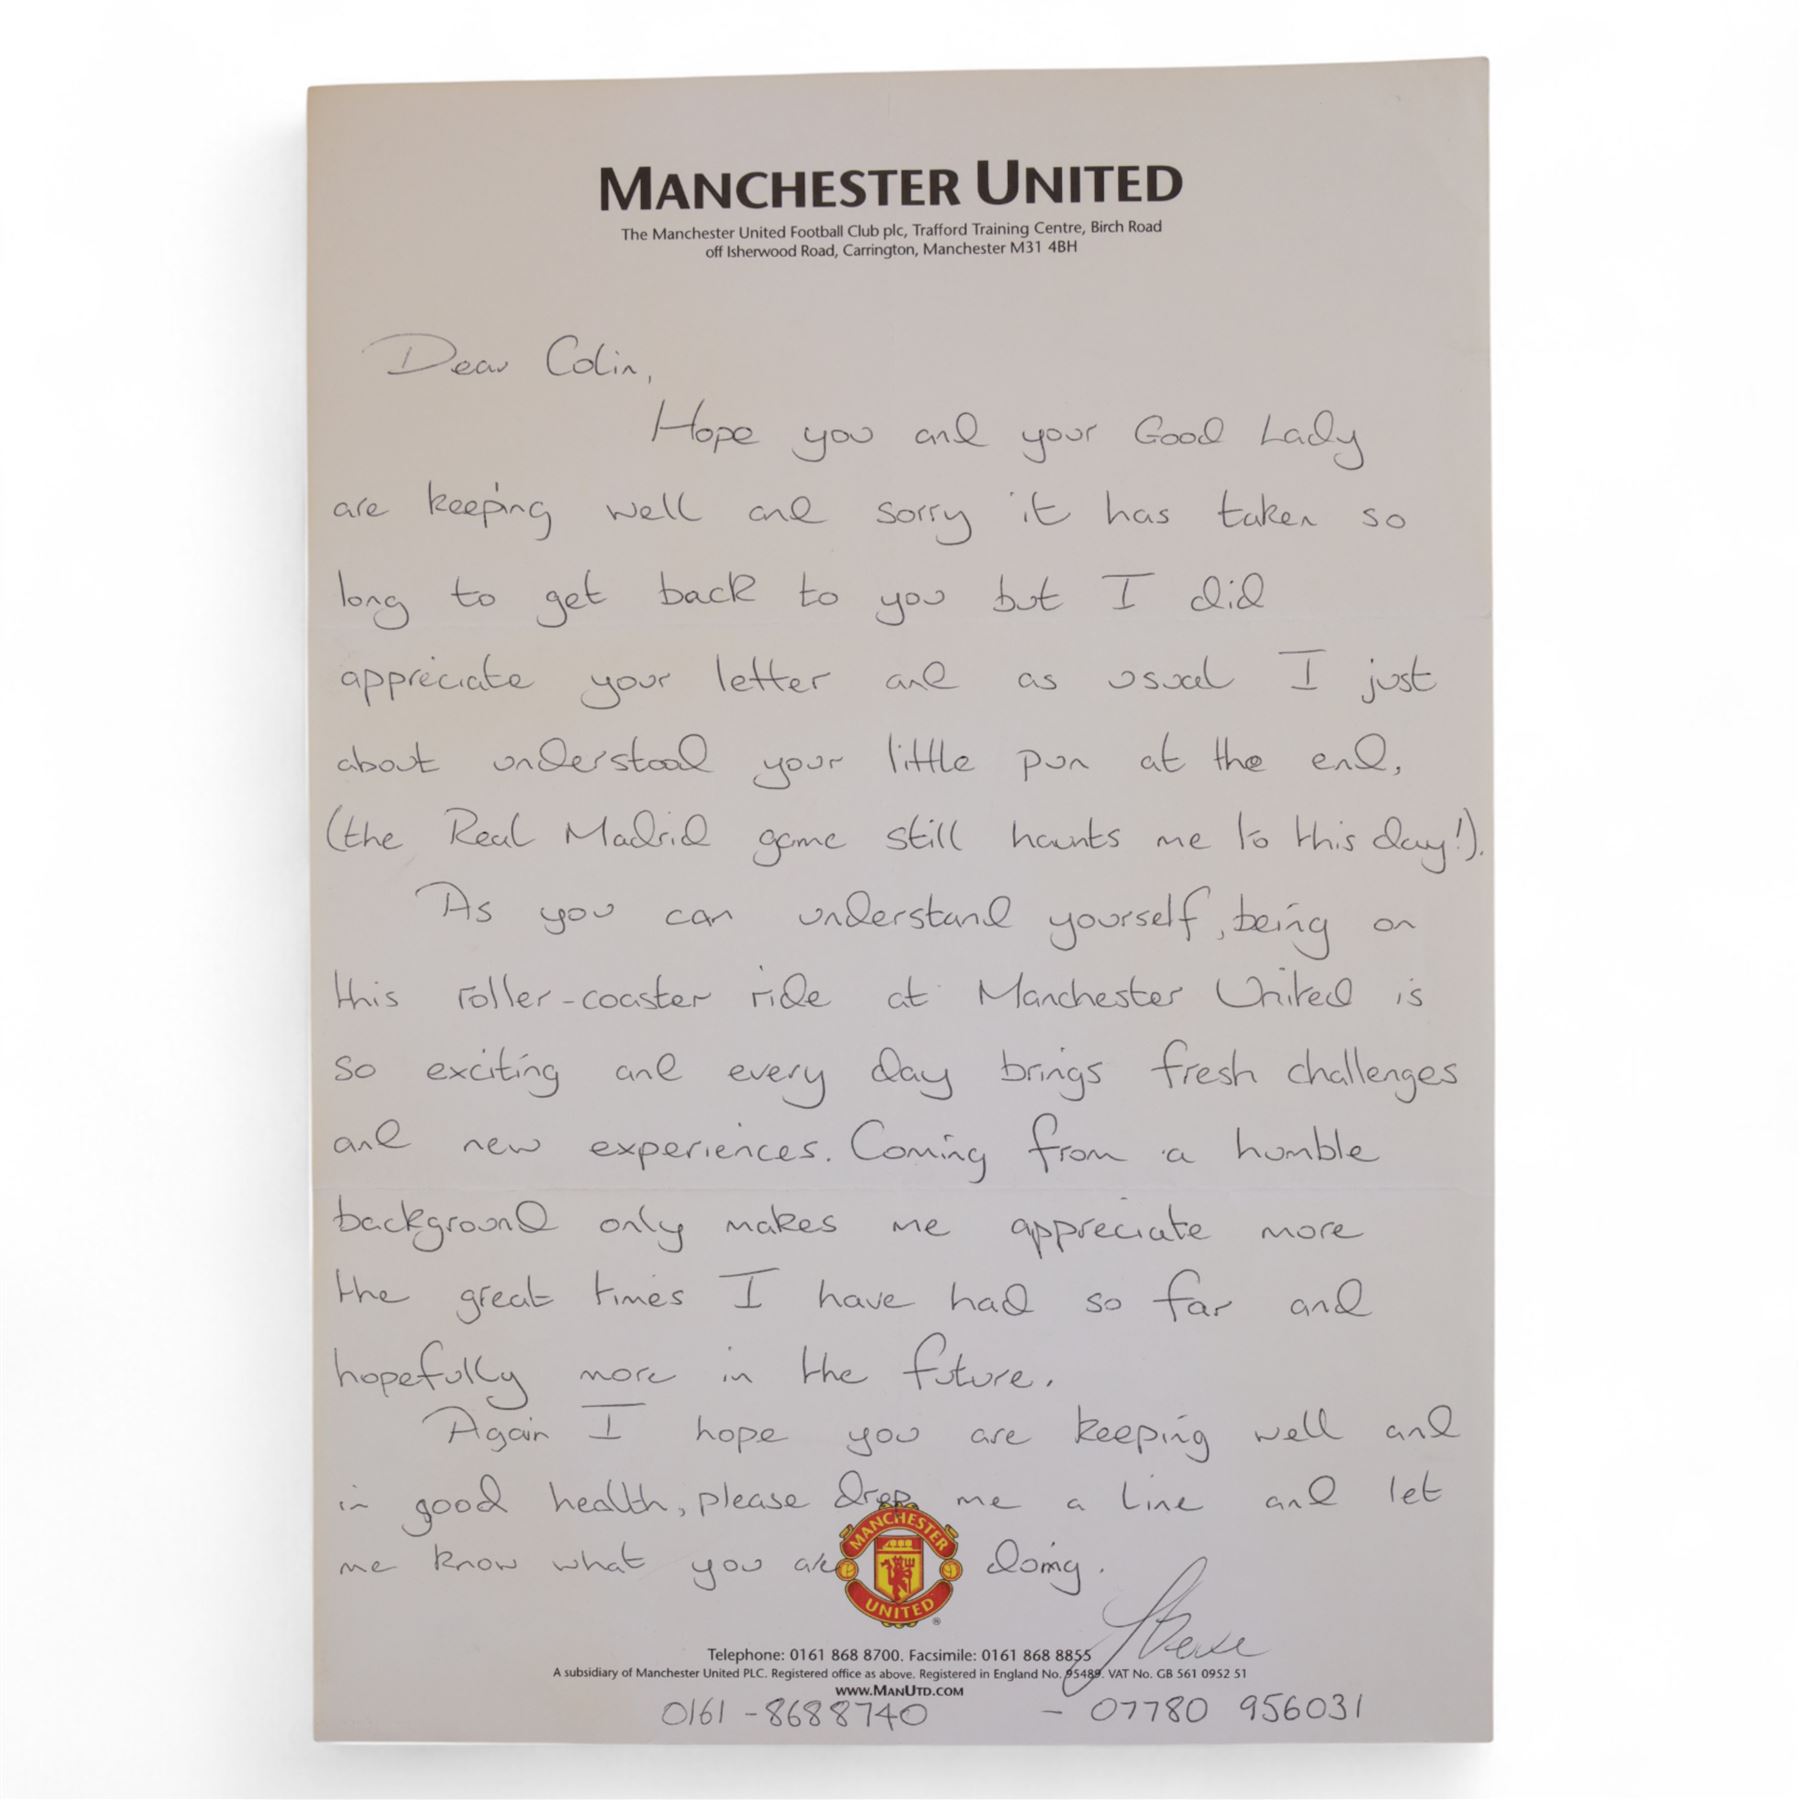 MANCHESTER UNITED
The Manchester United Football Club plc, Trafford Training Centre, Birch Road
off Isherwood Road, Carrington, Manchester M31 4BH
Dear Colin,
Hope you and your Good Lady
are keeping well and sorry it has taken so
long to get back to you but I did
appreciate your letter and as usual I just
about understood your little pun at the end,
(the Real Madrid game still haunts me to this day!).
As you can understand yourself, being on
this roller-coaster ride at Manchester United is
so exciting and every day brings fresh challenges
and new experiences. Coming from a humble
background only makes me appreciate more
the great times I have had so far and
hopefully more in the future.
Again I hope you are keeping well and
in good health, please drop me a line and let
me know what you are doing.
MANCHESTER
UNITED
®
Steve
Telephone: 0161 868 8700. Facsimile: 0161 868 8855
A subsidiary of Manchester United PLC. Registered office as above. Registered in England No. 95489. VAT No. GB 561 0952 51
www.MANUTD.COM
0161 - 8688740 - 07780 956031